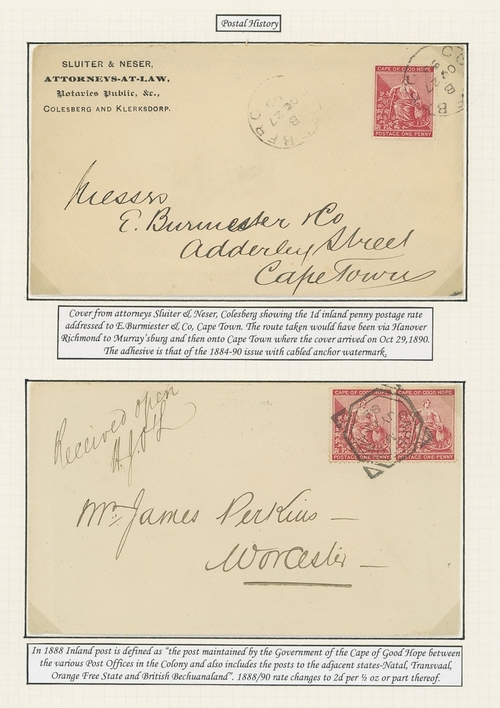 Postal History
SLUITER & NESER,
ATTORNEYS-AT-LAW,
Notaries Public, &c.,
COLESBERG AND KLERKSDORP.
CAPE OF GOOD HOPE
POSTAGE ONE PENNY
Messrs
E. Burmester & Co
Adderley Street
Cape Town
Cover from attorneys Sluiter & Neser, Colesberg showing the 1d inland penny postage rate
addressed to E.Burmiester & Co, Cape Town. The route taken would have been via Hanover
Richmond to Murray'sburg and then onto Cape Town where the cover arrived on Oct 29,1890.
The adhesive is that of the 1884-90 issue with cabled anchor watermark.
Received open
CAPE OF GOOD HOPE CAPE OF GOOD HOPE
POSTAGE ONE PENNY POSTAGE ONE PENNY
Mr. James Perkins
Worcester
In 1888 Inland post is defined as "the post maintained by the Government of the Cape of Good Hope between
the various Post Offices in the Colony and also includes the posts to the adjacent states-Natal, Transvaal,
Orange Free State and British Bechuanaland". 1888/90 rate changes to 2d per ½ oz or part thereof.